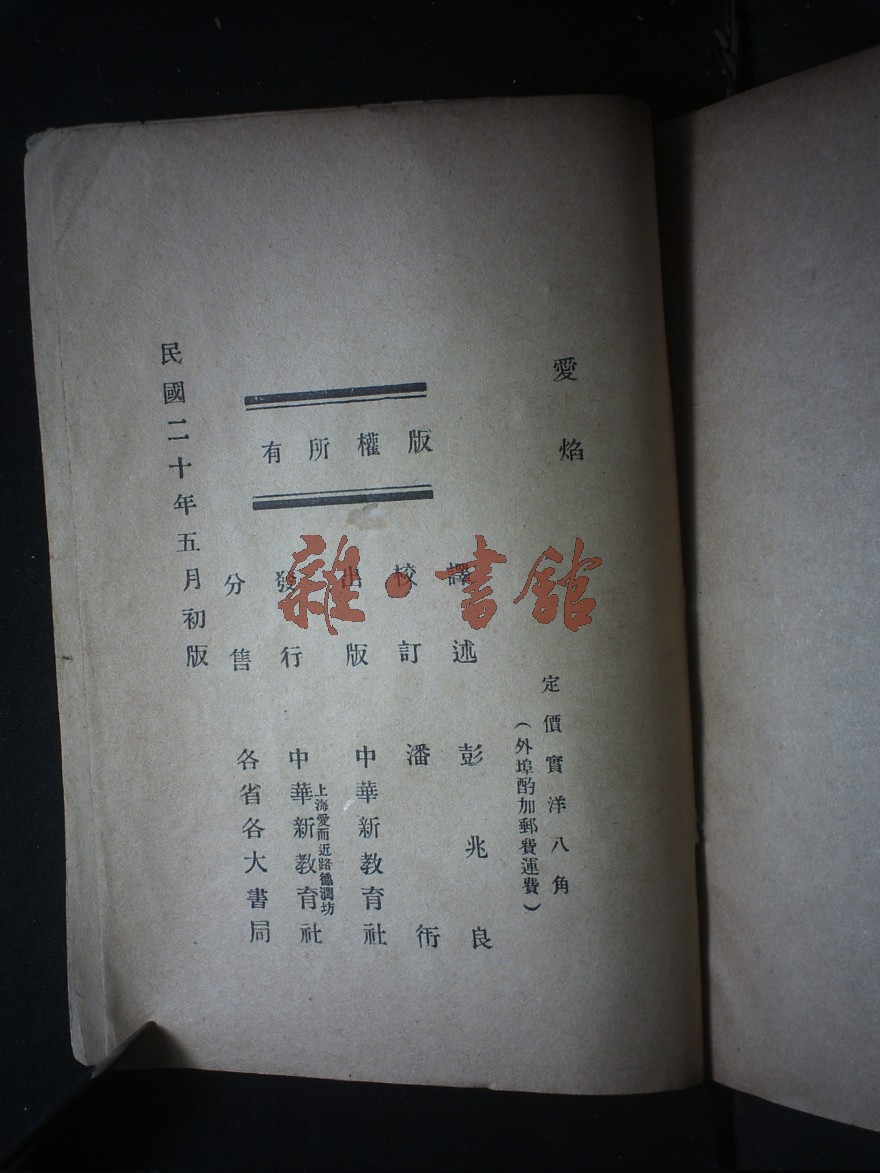 愛焰
定價實洋八角
（外埠酌加郵費運費）
版權所有
譯述 彭兆良
校訂 潘衎
出版 中華新教育社
上海愛而近路德潤坊
發行 中華新教育社
分售 各省各大書局
民國二十年五月初版
雜·書館